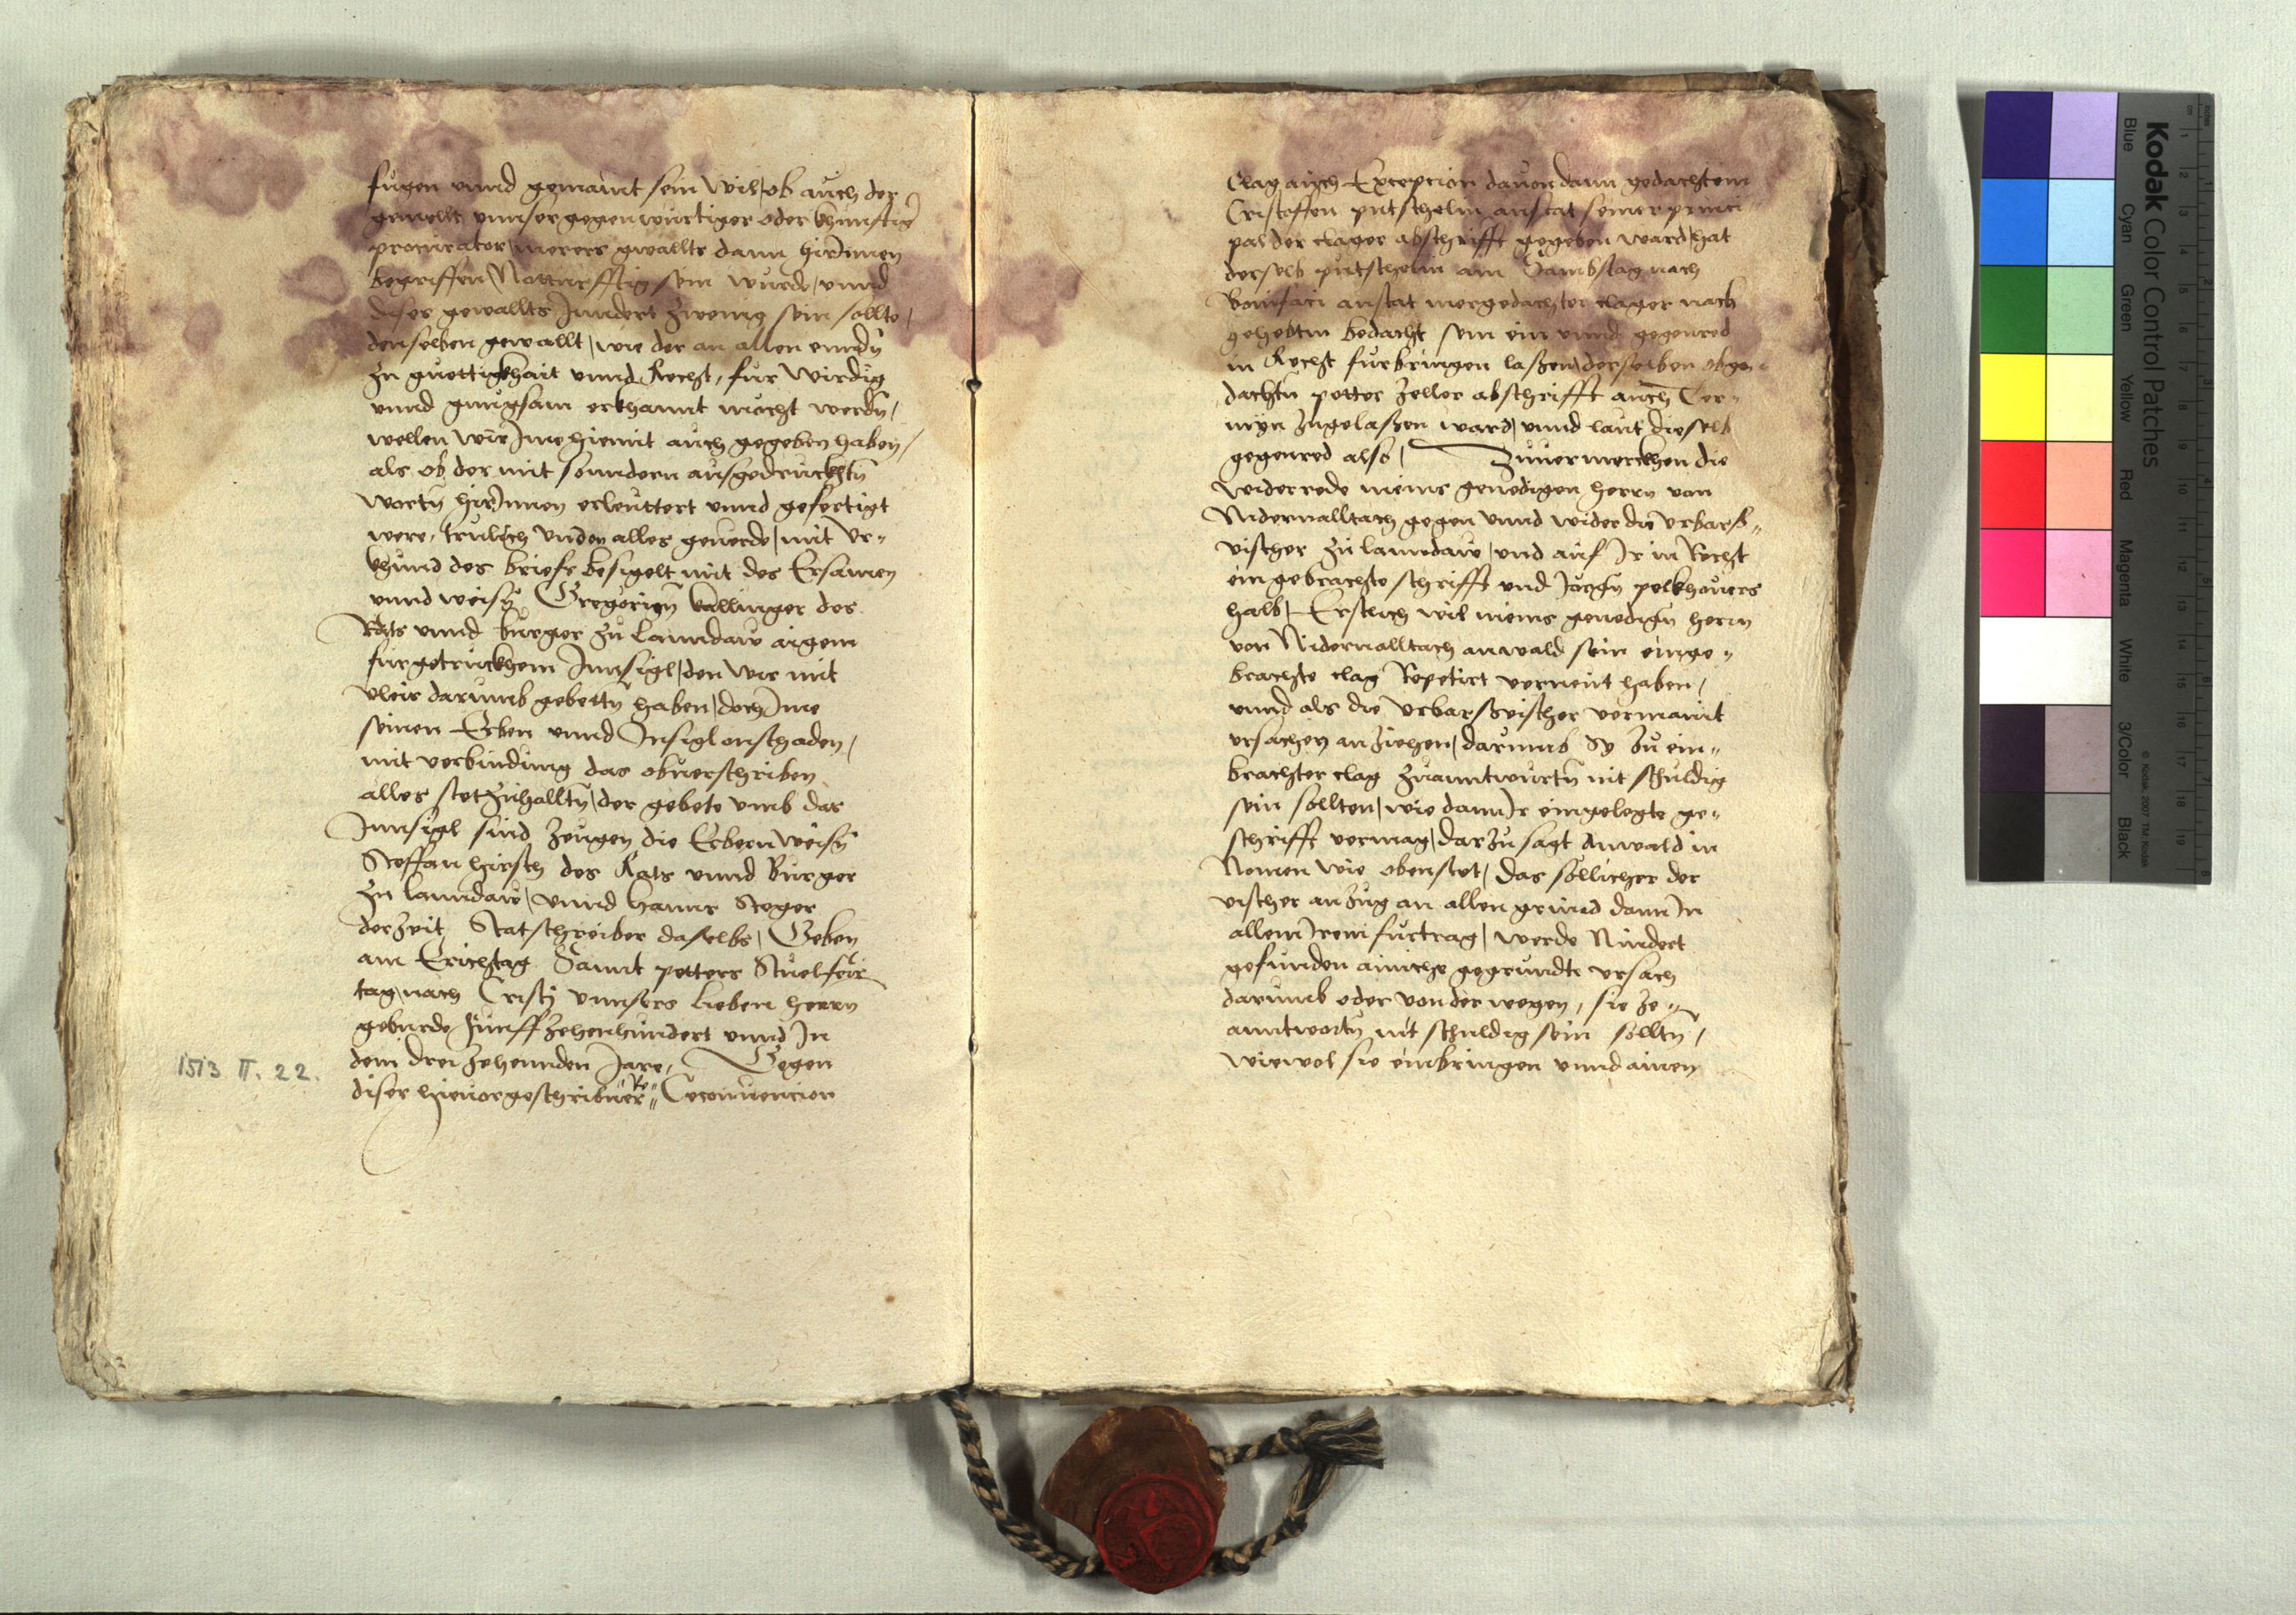 fugen vnnd gemaint sein wil, ob auch der
gemellt vnnser gegenwurtiger oder khunftig
procurator merers gwallts dann hirInnen
begriffen Notturfftig sein wurde, vnnd
diser gewallts Inndert zwenig sein sollte,
denselben gewallt, wie der an allen enndñ
zu guettigkhait vnnd Recht, fur wirdig
vnnd gnugsam erkhannt mocht werdñ,
wellen wir Ime hiemit auch gegeben haben,
als ob der mit sonndern ausgedruckhtñ
wortñ hirInnen erleuttert vnnd gefertigt
were, trulich vnd on alles geuerde, mit vr„
khund des briefs besigelt mit des Ersamen
vnnd weisñ Gregorien vallinger des
Rats vnnd burger zu lanndaw aigem
furgetruckhem Innsigl, den wir mit
vleis darumb gebettñ haben, doch Ime
seinen Erben vnnd Insigl onschaden,
mit verbindung das obuerschriben
alles stet zuhalltñ, der gebete vmb das
Innsigl sind zeugen die Erbern weisñ
Steffan hirsch des Rats vnnd Burger
zu lanndaw, vnnd hanns Steger
derzeit Statschreiber daselbs, Geben
am Erichtag Sannt petters Stuelfeir
tag, nach Cristj vnnsers lieben herrn
geburde funffzehenhundert vnnd In
dem dreizehennden Jare, Gegen
1513 II. 22.
diser hieuorgeschribner „Re„ Coconuencion
Clag auch Exception dauon dann gedachtem
Cristoffen putschelin anstat seiner princi„
pal der clager abschrifft gegeben ward, hat
derselb putschelin am Sambstag nach
Bonifaci anstat mergedachter clager nach
gehebtm bedacht sein ein vnnd gegenred
in Recht furbringen laßen, derselben obge„
dachtñ petter zeller abschrifft auch Ter„
myn zugelaßen ward, vnnd laut dieselb
gegenred also, Zuuermerckhen die
widerrede meins genedigen herrn von
Nidernalltach gegen vnnd wider die vrbars„
vischer zu lanndaw, vnd auf Ir in Recht
eingebrachte schrifft vnd Jorgñ pelkhouers
halb, Erstlich wil meins genedigñ herrn
von Nidernalltach anwald sein einge„
brachte clag Repetirt verneut haben,
vnnd als die vrbarßvischer vermaint
vrsachen anziehen, darumb Sy zu ein„
brachter clag zuanntwurtñ nit schuldig
sein sollten, wie dann Ir eingelegte ge„
schrifft vermag, darzu sagt Anwald in
Nomen wie obenstet, das sollicher der
vischer anzug an allen grund dann In
allem Irem furtrag, werde Nindert
gefunden ainiche gegrundte vrsach
darumb oder von der wegen, sie ze„
anntwortñ nit schuldig sein solltñ,
wiewol sie einbringen vnnd ainen
Kodak Color Control Patches
Blue
Cyan
Green
Yellow
Red
Magenta
White
3/Color
Black
© Kodak, 2007 TM: Kodak